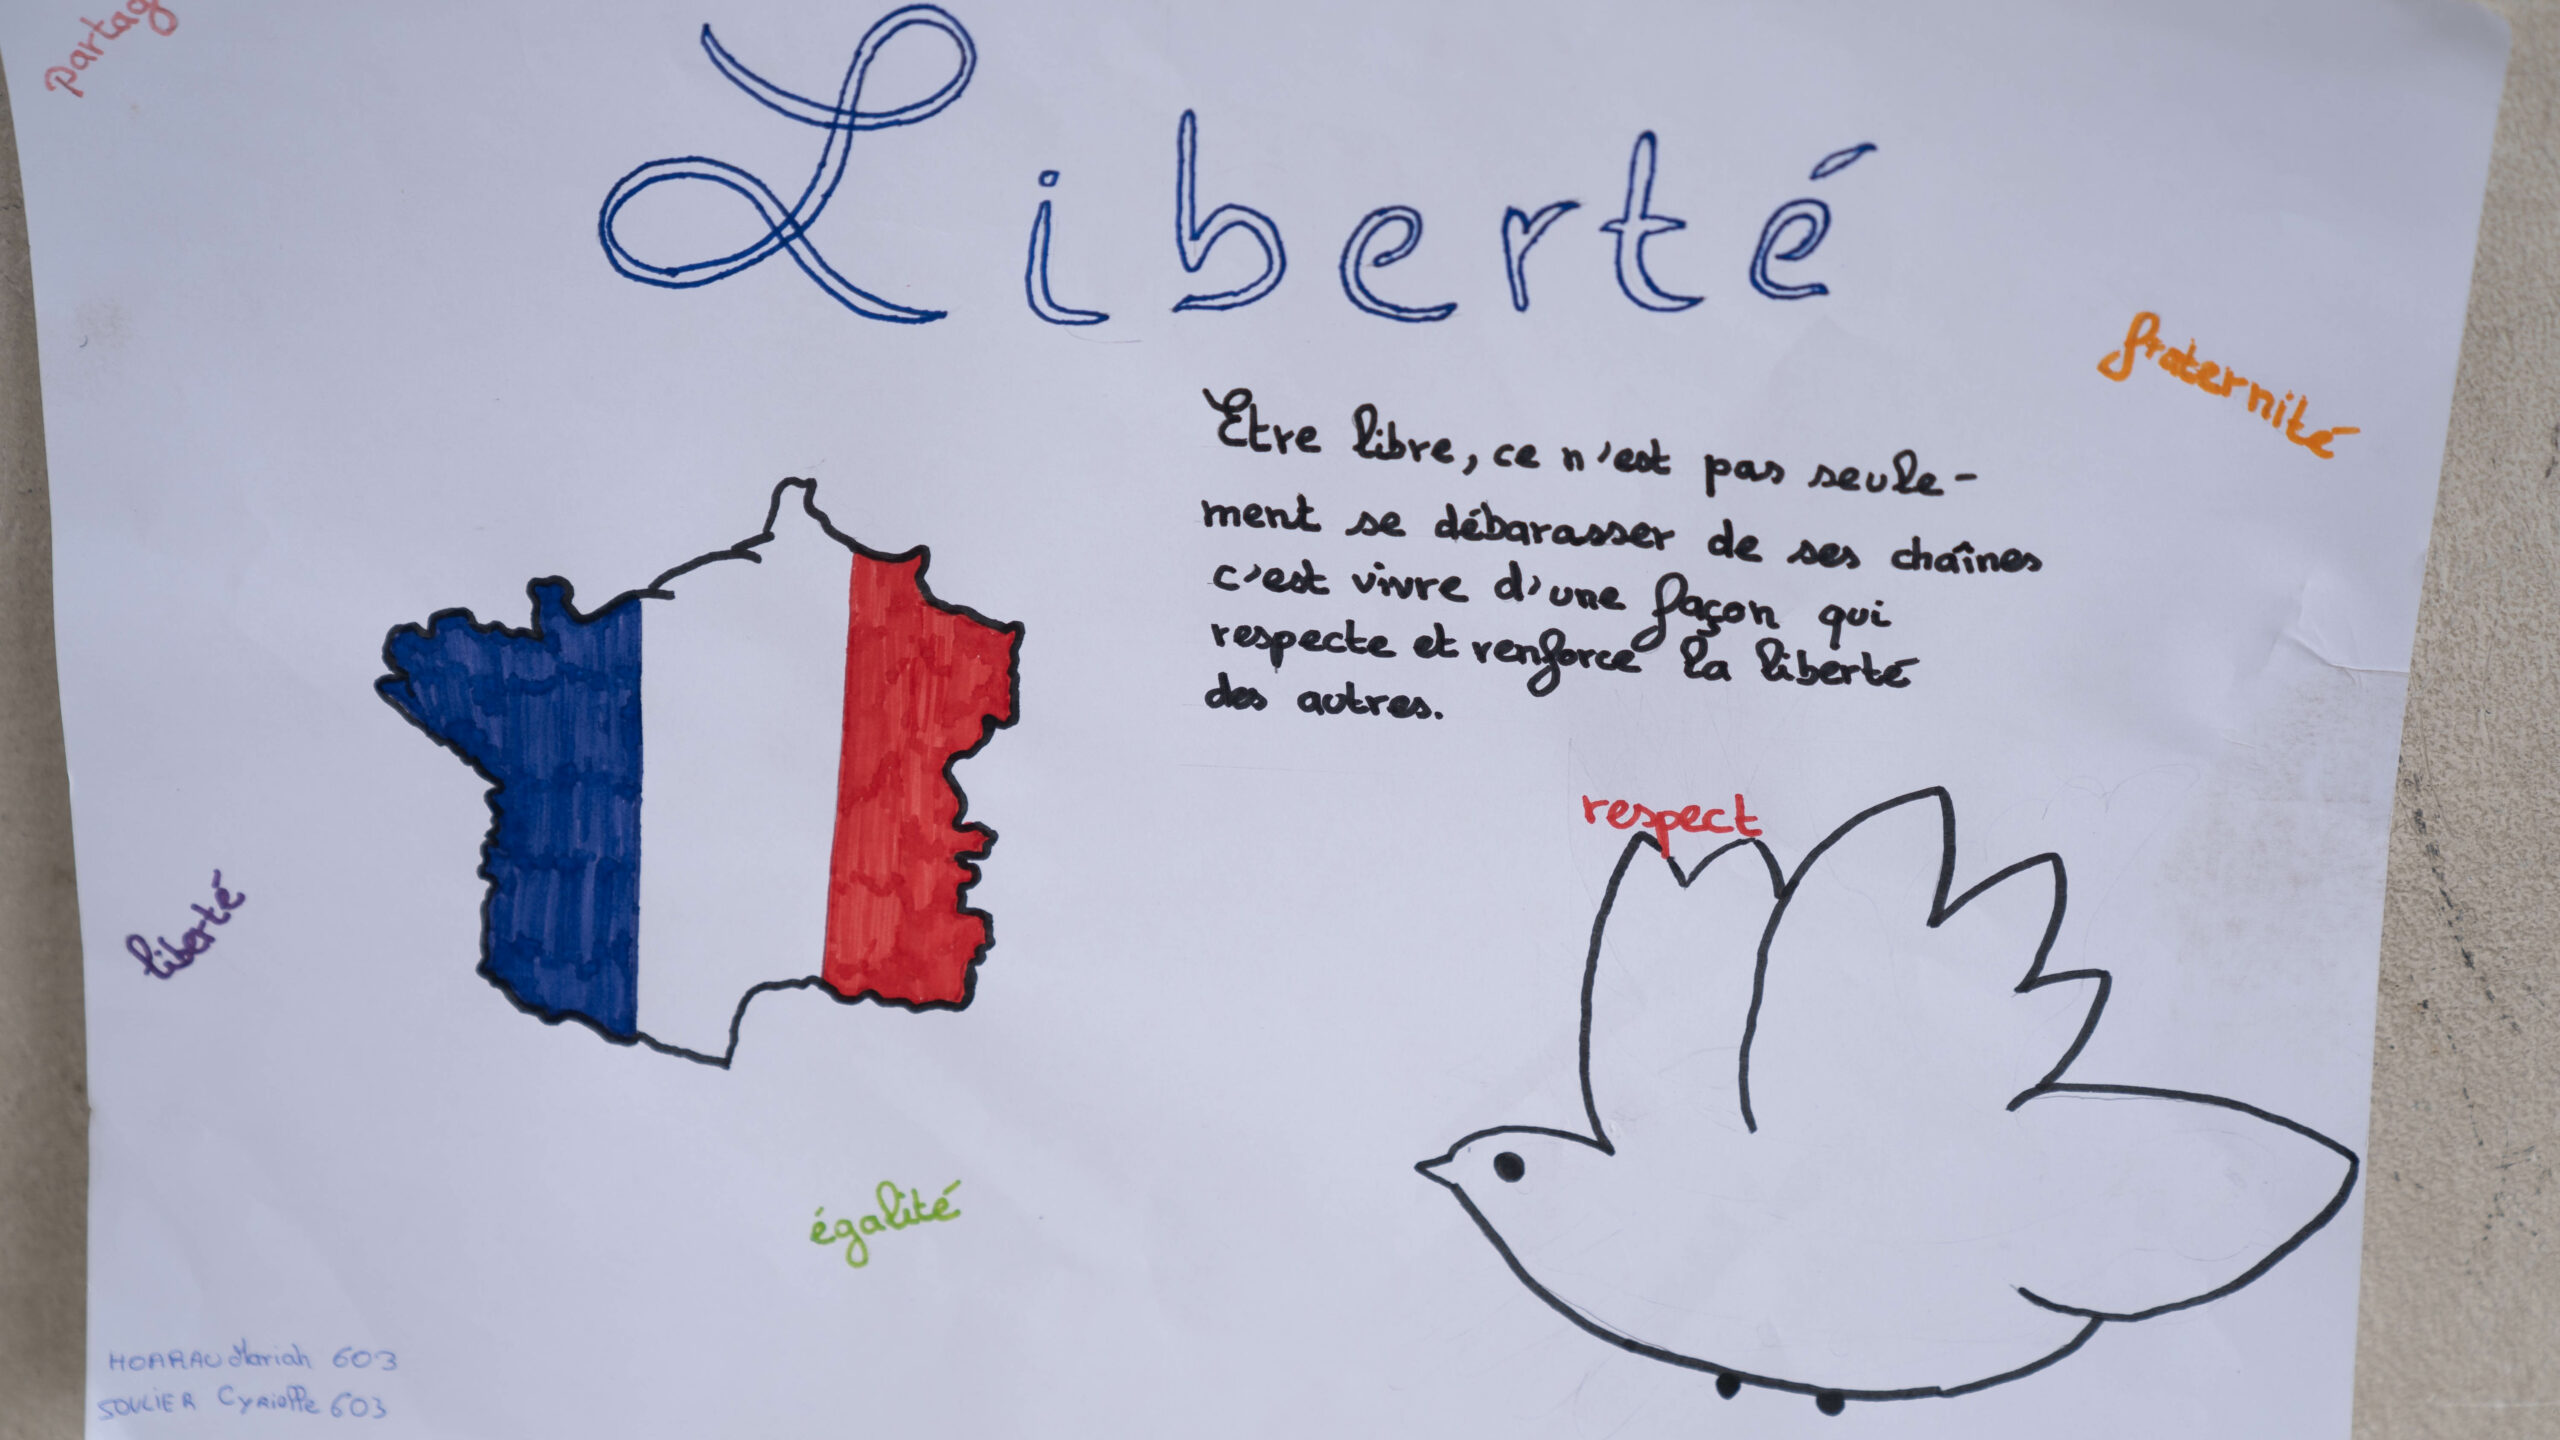 Partag
Liberté
fraternité
Etre libre, ce n'est pas seule-
ment se débarasser de ses chaînes
c'est vivre d'une façon qui
respecte et renforce la liberté
des autres.
respect
liberté
égalité
HOARAU Mariah 603
SOULIER Cyrielle 603